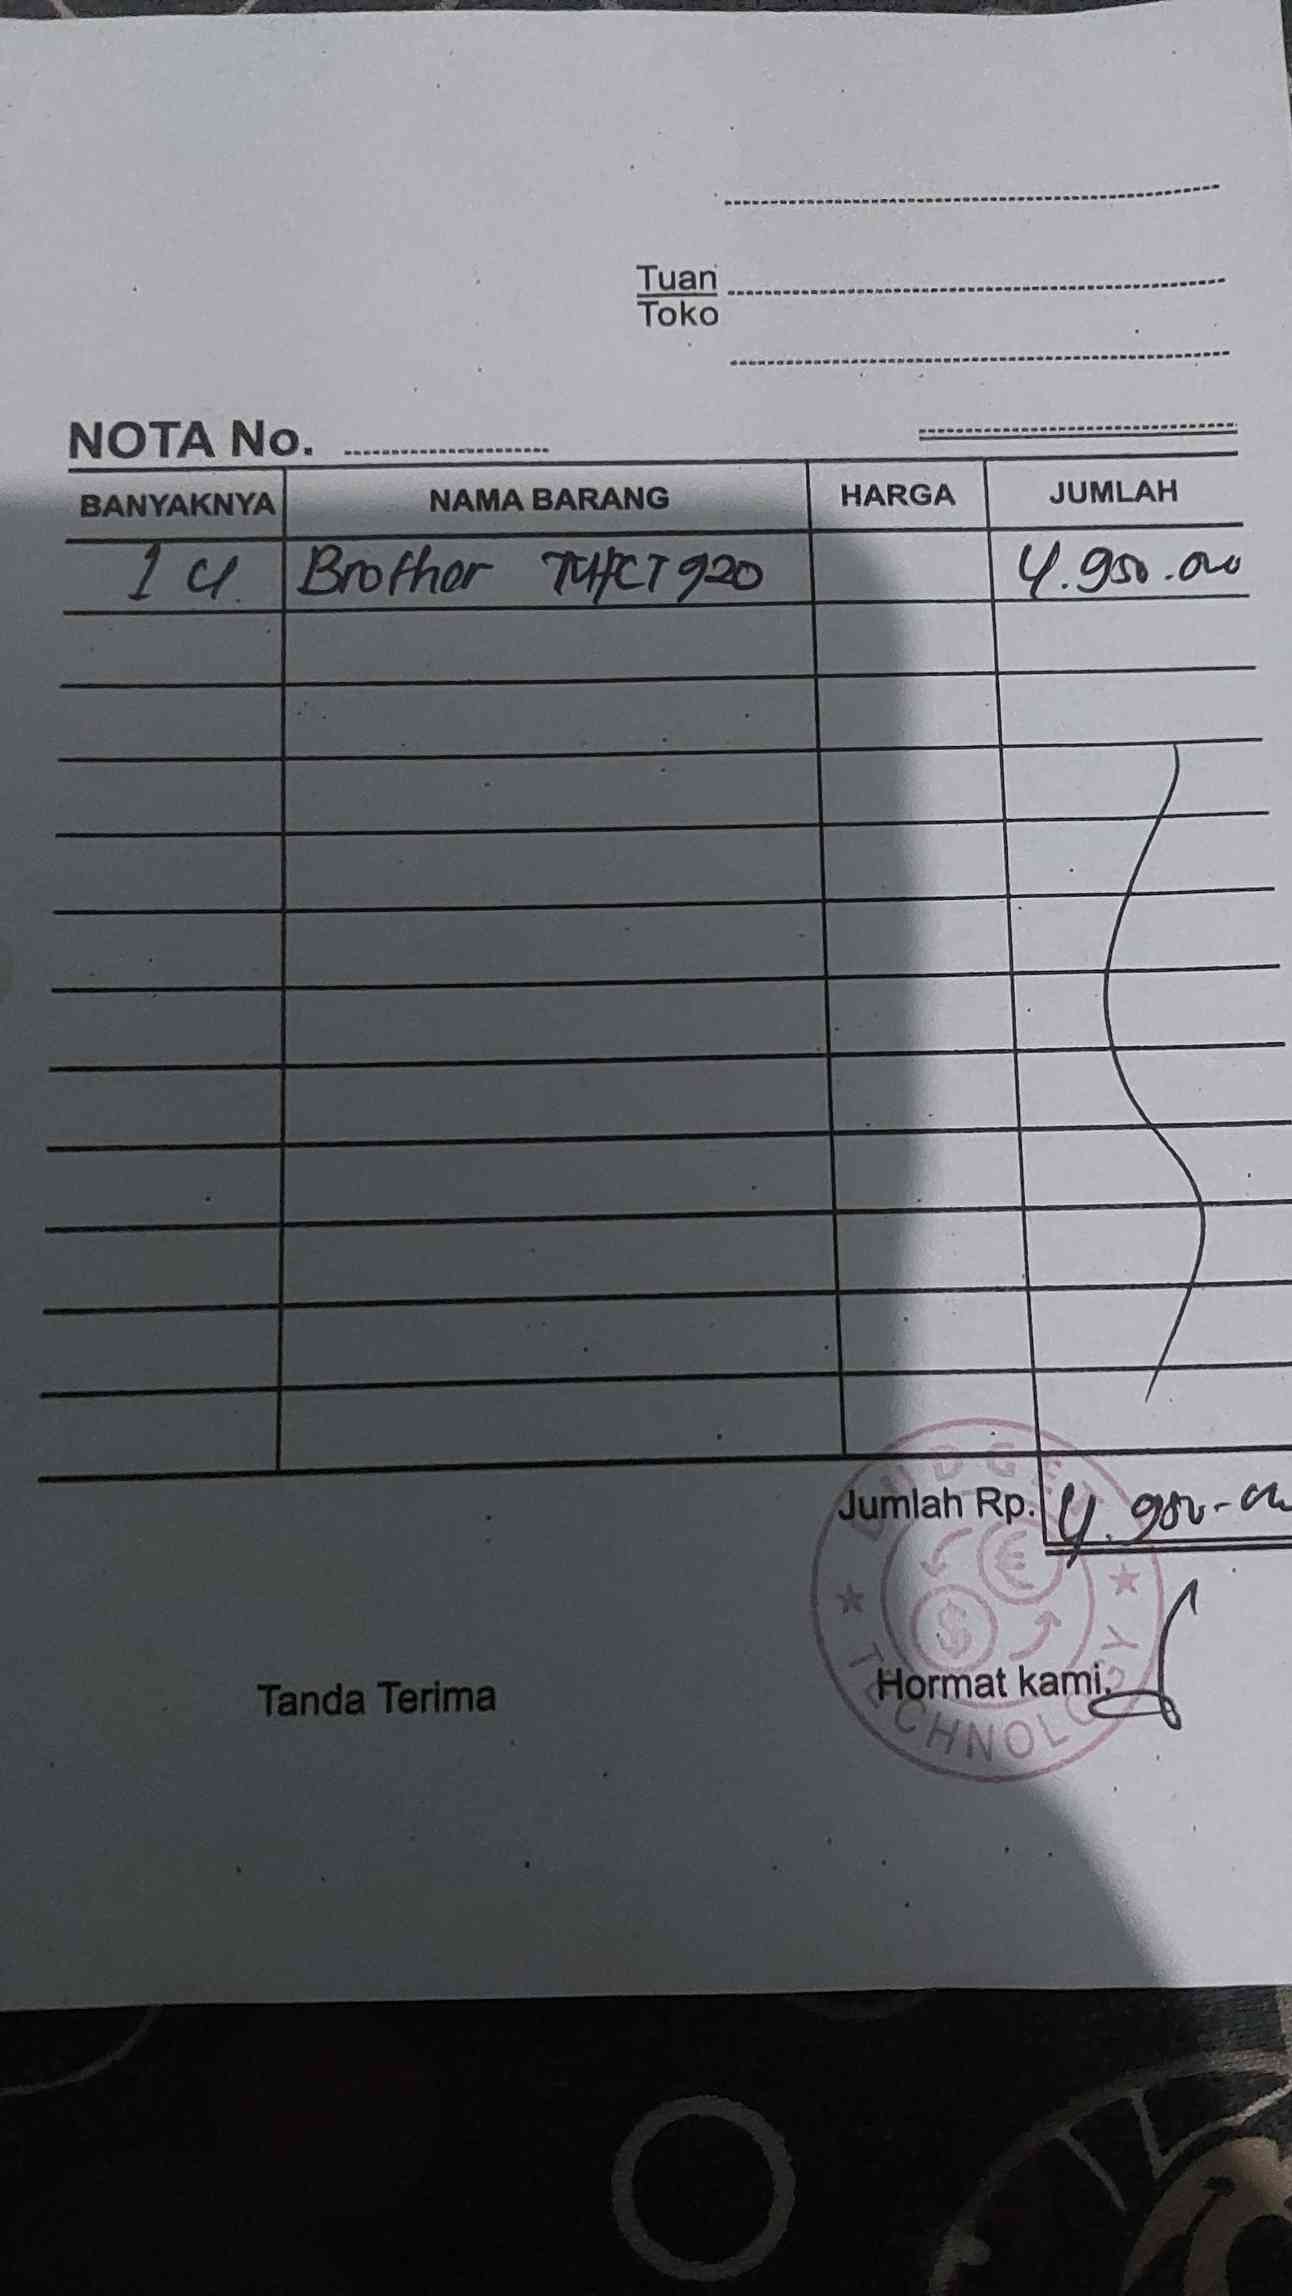 Tuan
Toko
NOTA No.
BANYAKNYA NAMA BARANG HARGA JUMLAH
1 U. Brother T920 4.950.000
Jumlah Rp. 4.950.000
BUDGET
Tanda Terima Hormat kami,
TECHNOLOGY